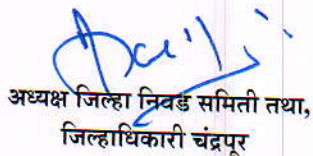 अध्यक्ष जिल्हा निवड समिती तथा,
जिल्हाधिकारी चंद्रपूर